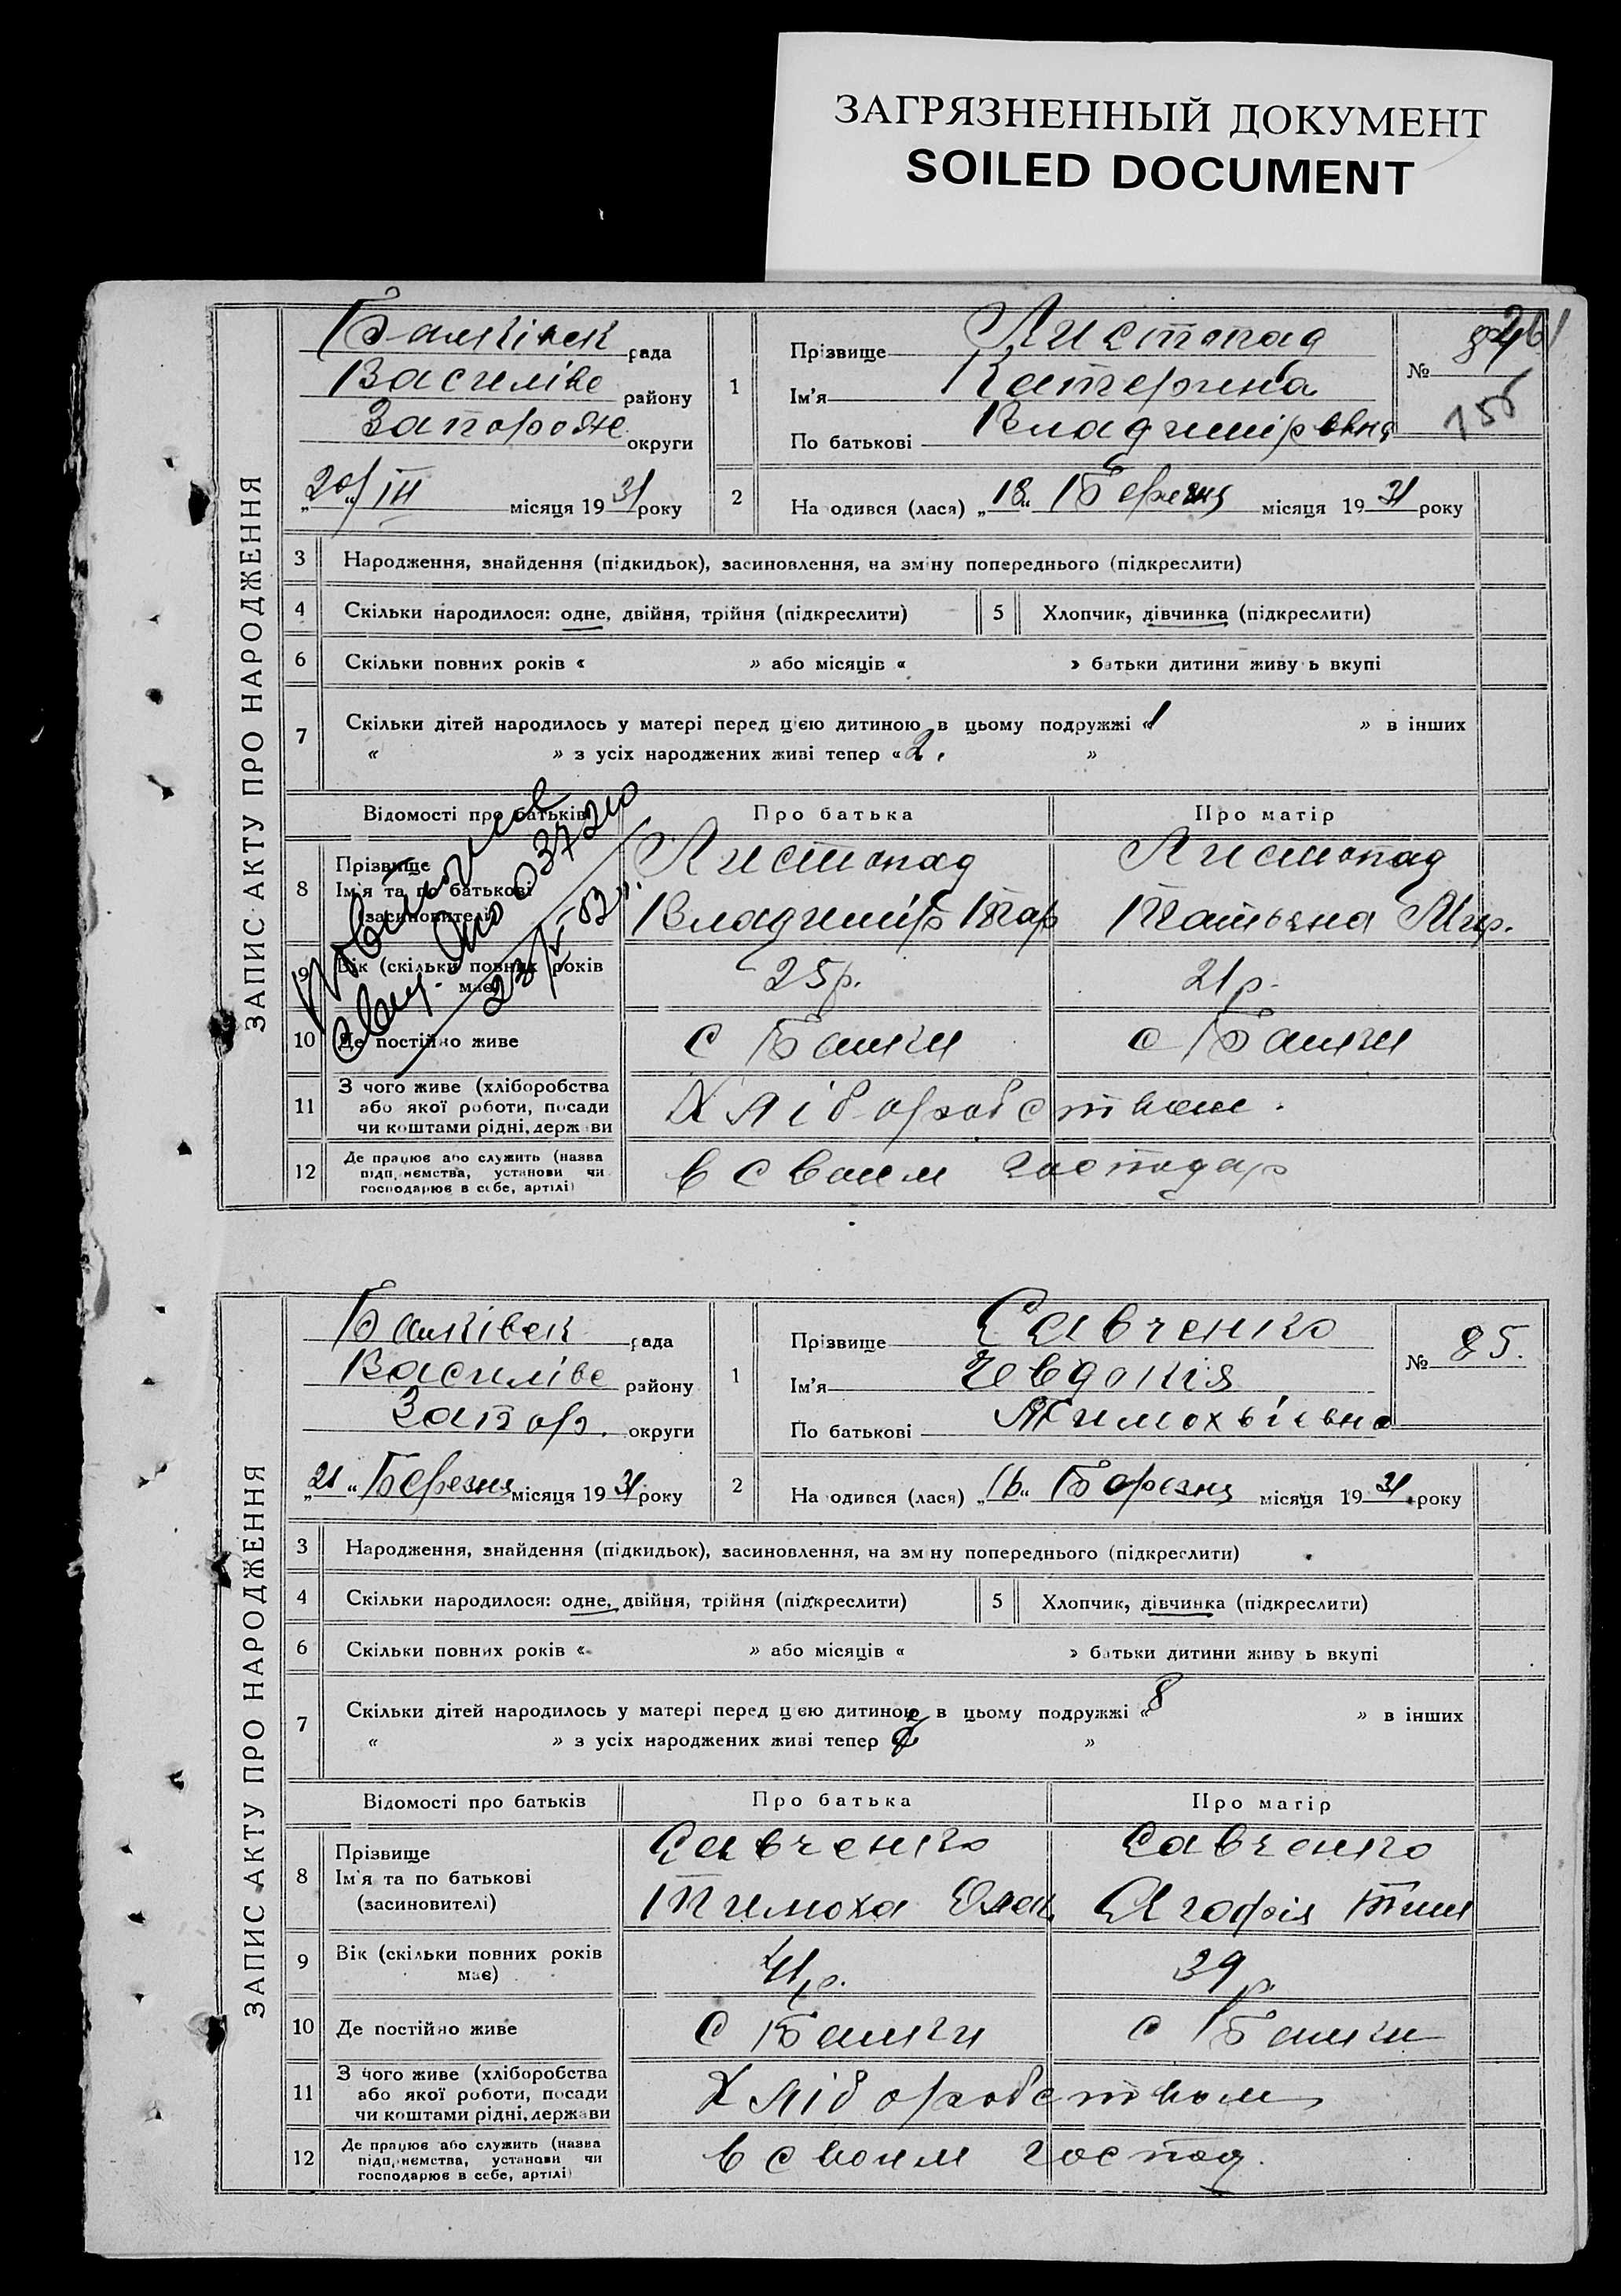 ЗАГРЯЗНЕННЫЙ ДОКУМЕНТ
SOILED DOCUMENT
ЗАПИС АКТУ ПРО НАРОДЖЕННЯ
рада
Василіве району
Запорож округи
„20“/III місяця 1931 року
1
Прізвище Листопад
Ім'я Катерина
По батькові Владимірвна
№
156
2
На одився (лася) „18“ Березня місяця 1931 року
3 Народження, знайдення (підкидьок), засиновлення, на зміну попереднього (підкреслити)
4 Скільки народилося: одне, двійня, трійня (підкреслити) 5 Хлопчик, дівчинка (підкреслити)
6 Скільки повних років « » або місяців « » батьки дитини живу ь вкупі
7 Скільки дітей народилось у матері перед цією дитиною в цьому подружжі «1 » в інших
« » з усіх народжених живі тепер «2. »
Відомості про батьків Про батька Про матір
8 Прізвище
Ім'я та по батькові
(засиновителі)
Листопад
Владимір
Листопад
Татьяна
9 Вік (скільки повних років має) 25р. 21р.
10 Де постійно живе с Балки с Балки
11 З чого живе (хліборобства або якої роботи, посади чи коштами рідні, держави Хліборобством.
12 Де працює або служить (назва підп, иємства, установи чи господарює в себе, артілі) в своем господар
ЗАПИС АКТУ ПРО НАРОДЖЕННЯ
Балківск рада
Василіве району
Запор. округи
„21“ Березня місяця 1931 року
1
Прізвище Савченко
Ім'я Євдокія
По батькові Тимохвієвна
№ 85.
2
На одився (лася) „16“ Березня місяця 1931 року
3 Народження, знайдення (підкидьок), засиновлення, на зміну попереднього (підкреслити)
4 Скільки народилося: одне, двійня, трійня (підкреслити) 5 Хлопчик, дівчинка (підкреслити)
6 Скільки повних років « » або місяців « » батьки дитини живу ь вкупі
7 Скільки дітей народилось у матері перед цією дитиною в цьому подружжі «8 » в інших
« » з усіх народжених живі тепер »
Відомості про батьків Про батька Про матір
8 Прізвище
Ім'я та по батькові
(засиновителі)
Савченко
Тимоха
Савченко
Агофія Тим
9 Вік (скільки повних років має) 41р. 39р.
10 Де постійно живе с Балки с Балки
11 З чого живе (хліборобства або якої роботи, посади чи коштами рідні, держави Хліборобством
12 Де працює або служить (назва підп, иємства, установи чи господарює в себе, артілі) в своем господ.